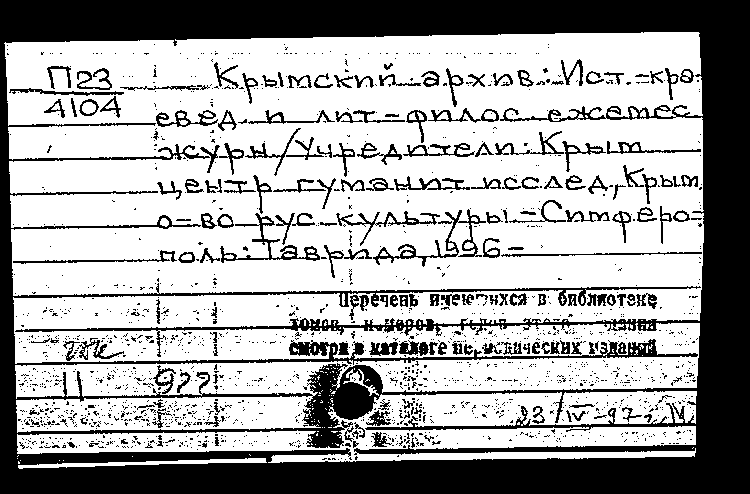 П23 Крымский архив: Ист.-кра-
4104 евед и лит-филос ежемес
журн/Учредители: Крым
центр гуманит исслед, Крым
о-во рус культуры - Симферо-
поль: Таврида, 1996-
Перечень имеющихся в библиотеке
томов, номеров,
смотри в каталоге периодических изданий
11 977
23/IV-97 г. М